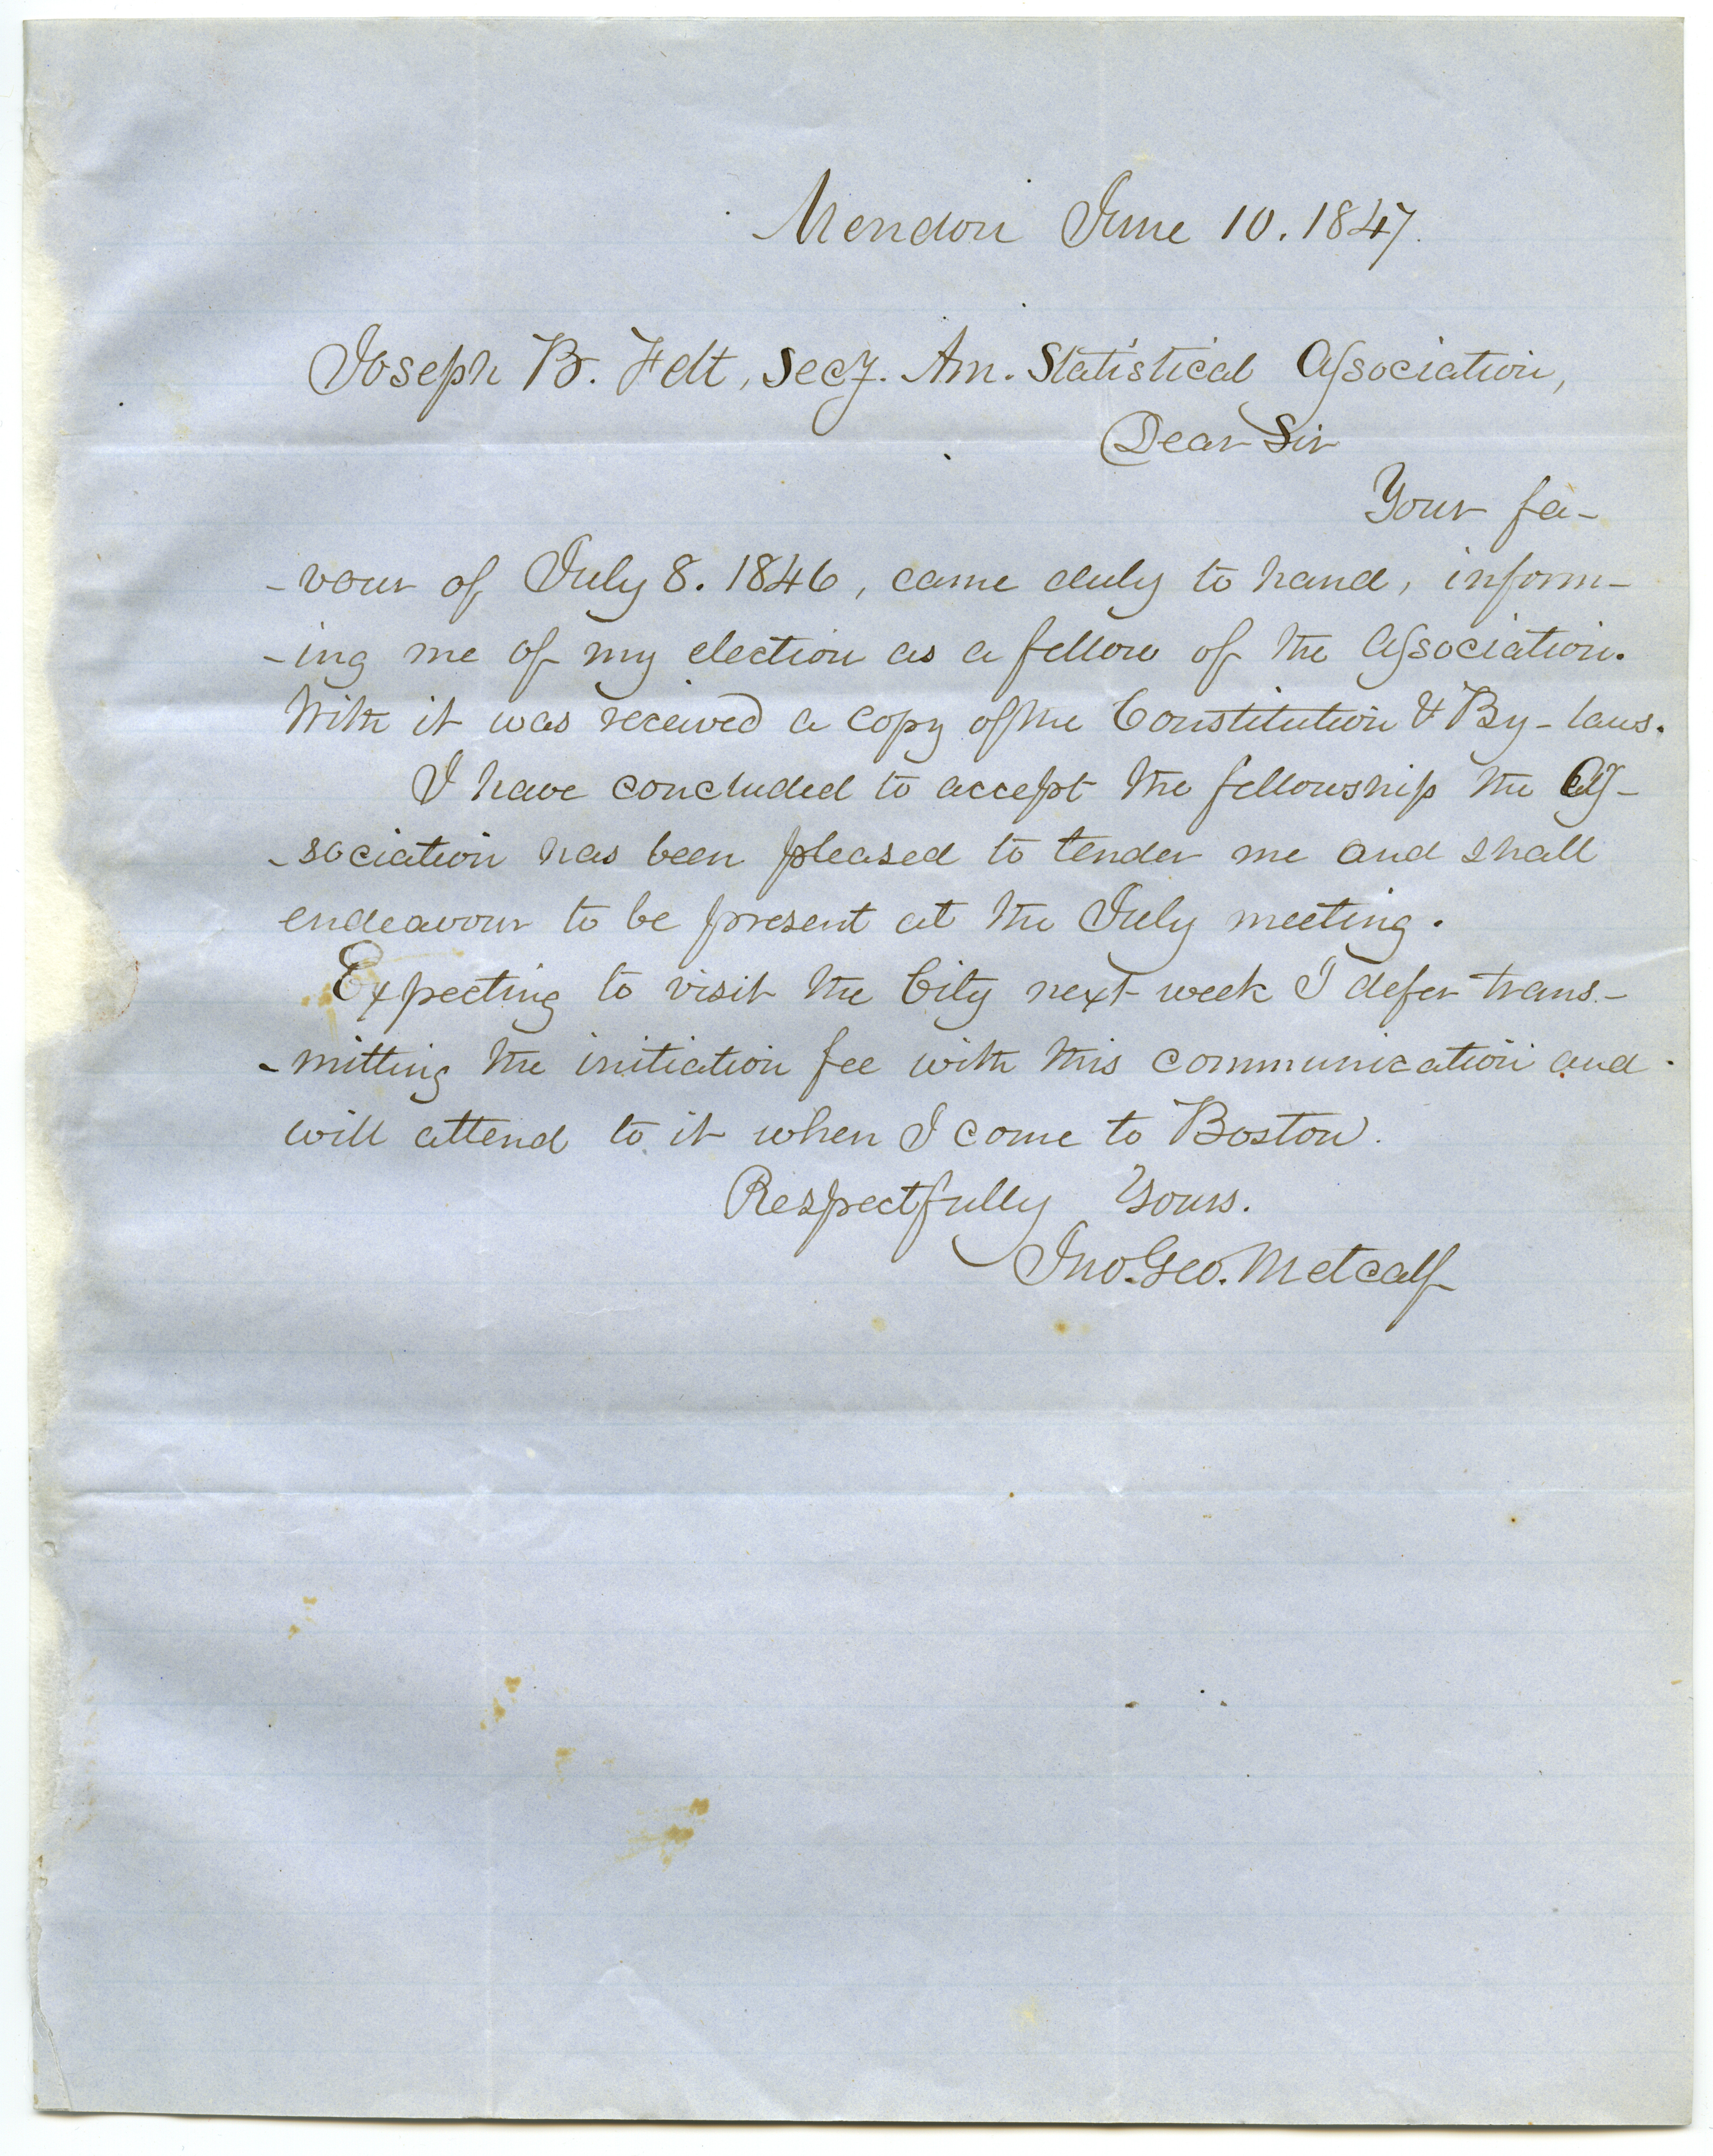 Mendon June 10. 1847.
Joseph B. Felt, Secy. Am. Statistical Association,
Dear Sir
Your fa-
-vour of July 8. 1846, came duly to hand, inform-
-ing me of my election as a fellow of the Association.
With it was received a copy of the Constitution & By-laws.
I have concluded to accept the fellowship the As-
-sociation has been pleased to tender me and shall
endeavour to be present at the July meeting.
Expecting to visit the City next week I defer trans-
-mitting the initiation fee with this communication and
will attend to it when I come to Boston.
Respectfully Yours.
Jno. Geo. Metcalf